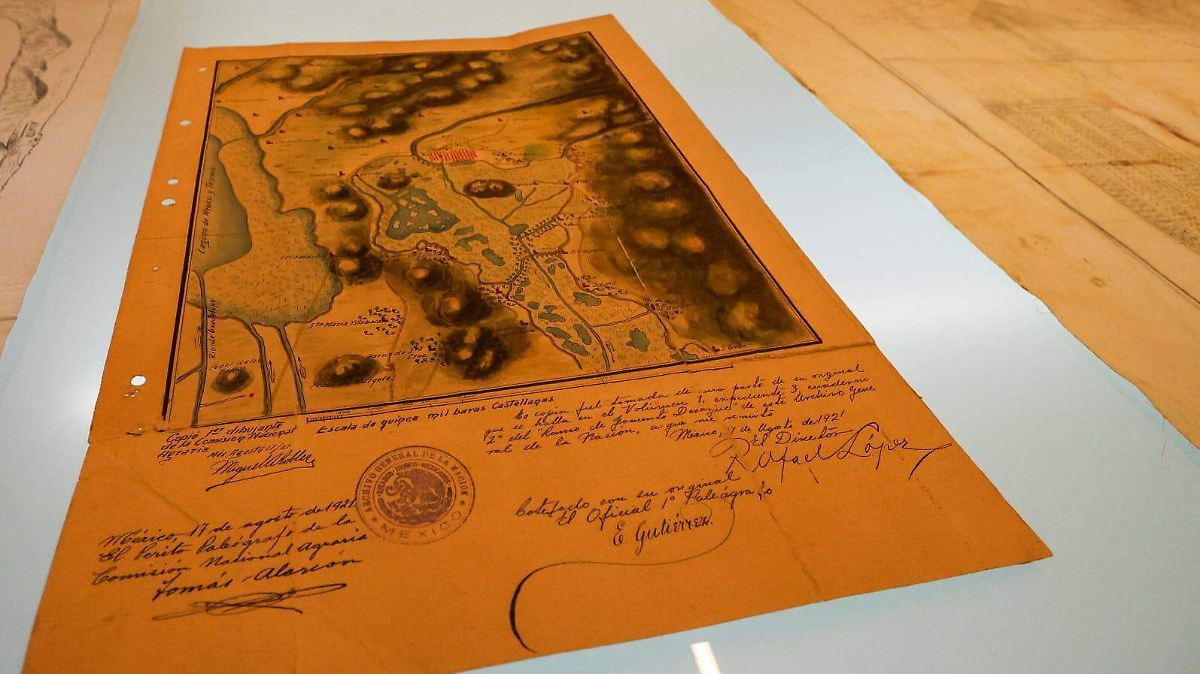 Laguna de Mexico y Tescuco
Rio de Guautitlan
Sta Maria
Escala de quince mil baras Castellanas
Copió 1er dibujante
de la Comisión Nacional
Agraria
Es copia fiel tomada de una parte de su original
que se halla en el Volúmen 1, expediente 3, cuaderno
2º del "Ramo de Fomento Desagüe" de este Archivo Gene
ral de la Nación, a que me remito
México, 17 de Agosto de 1921
El Director
Rafael López
ARCHIVO GENERAL DE LA NACION
ESTADOS UNIDOS MEXICANOS
MEXICO
Cotejado con su original
El Oficial 1º Paleógrafo
E. Gutiérrez.
México, 17 de agosto de 1921
El Perito Paleógrafo de la
Comisión Nacional Agraria
Tomás Alarcón